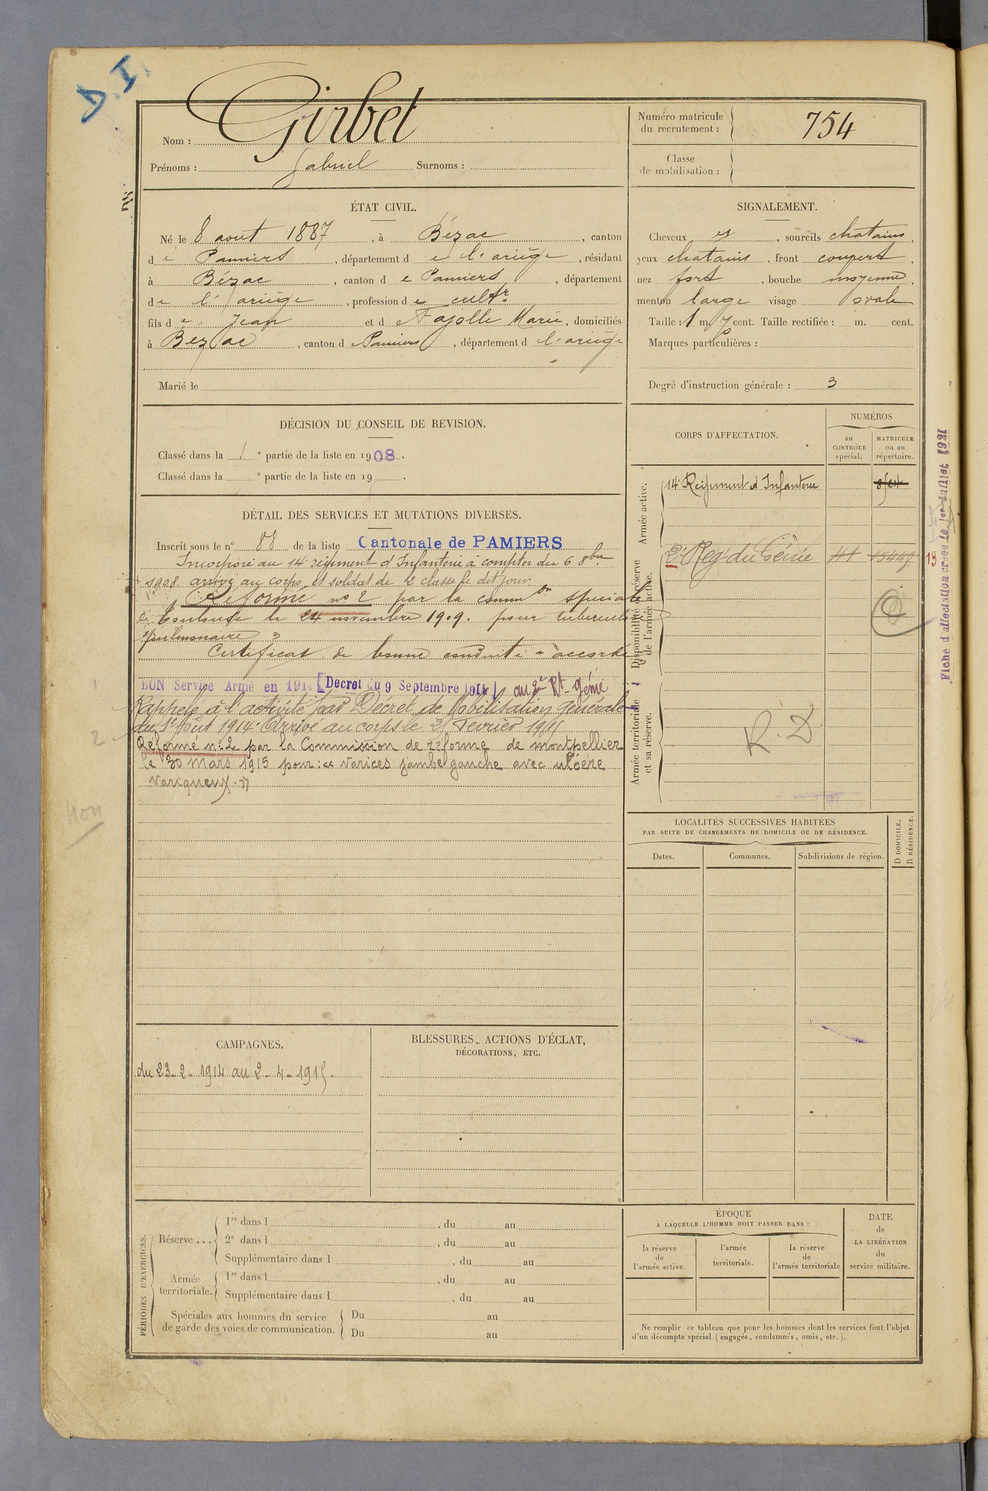 D.I.
Nom : Girbet
Prénoms : Gabriel Surnoms :
Numéro matricule
du recrutement : 754
Classe
de mobilisation :
ÉTAT CIVIL.
Né le 8 aout 1887, à Bézac, canton
de Pamiers, département de l'ariège, résidant
à Bézac, canton de Pamiers, département
de l'ariège, profession de cultr
fils de Jean et de Fajolle Marie, domiciliés
à Bézac, canton de Pamiers, département de l'ariège
Marié le
SIGNALEMENT.
Cheveux et, sourcils chatains,
yeux chatains, front couvert,
nez fort, bouche moyenne,
menton large visage ovale
Taille : 1 m. 7 cent. Taille rectifiée : m. cent.
Marques particulières :
Degré d'instruction générale : 3
DÉCISION DU CONSEIL DE REVISION.
Classé dans la 1e partie de la liste en 1908.
Classé dans la e partie de la liste en 19 .
DÉTAIL DES SERVICES ET MUTATIONS DIVERSES.
Inscrit sous le n° 88 de la liste Cantonale de PAMIERS
Incorporé au 14e régiment d'Infanterie à compter du 6 8bre
1908 arrivé au corps et soldat de 2e classe le dit jour
Réformé no 2 par la common spéciale
de Toulouse le 24 novembre 1909. pour tuberculose
pulmonaire »
Certificat de bonne conduite "accordé"
BON Service Armé en 1914 [Decret du 9 Septembre 1914] au 2e Rt génie
Rappelé à l'activité par Décret de Mobilisation Générale
du 1er Août 1914. Arrivé au corps le 23 Février 1915
Réformé n° 2 par la Commission de réforme de montpellier
le 30 mars 1915 pour : « varices jambe gauche avec ulcère
variqueux. »
CORPS D'AFFECTATION.
NUMÉROS
au
CONTRÔLE
spécial.
MATRICULE
ou au
répertoire.
Armée active.
14e Régiment d'Infanterie
Disponibilité et réserve
de l'armée active.
2e Reg du Génie 15449 13
Armée territoriale
et sa réserve.
R.D
Fiche d'affectation créée le 1er Juillet 1921
non
LOCALITÉS SUCCESSIVES HABITÉES
PAR SUITE DE CHANGEMENTS DE DOMICILE OU DE RÉSIDENCE.
Dates. Communes. Subdivisions de région.
D DOMICILE.
R RÉSIDENCE.
CAMPAGNES.
du 23-2-1914 au 2-4-1915-
BLESSURES, ACTIONS D'ÉCLAT,
DÉCORATIONS, ETC.
PÉRIODES D'EXERCICES.
Réserve ...
1re dans l , du au
2e dans l , du au
Supplémentaire dans l , du au
Armée
territoriale.
1re dans l , du au
Supplémentaire dans l , du au
Spéciales aux hommes du service
de garde des voies de communication.
Du au
Du au
ÉPOQUE
À LAQUELLE L'HOMME DOIT PASSER DANS :
la réserve
de
l'armée active.
l'armée
territoriale.
la réserve
de
l'armée territoriale
DATE
de
LA LIBÉRATION
du
service militaire.
Ne remplir ce tableau que pour les hommes dont les services font l'objet
d'un décompte spécial (engagés, condamnés, omis, etc.).